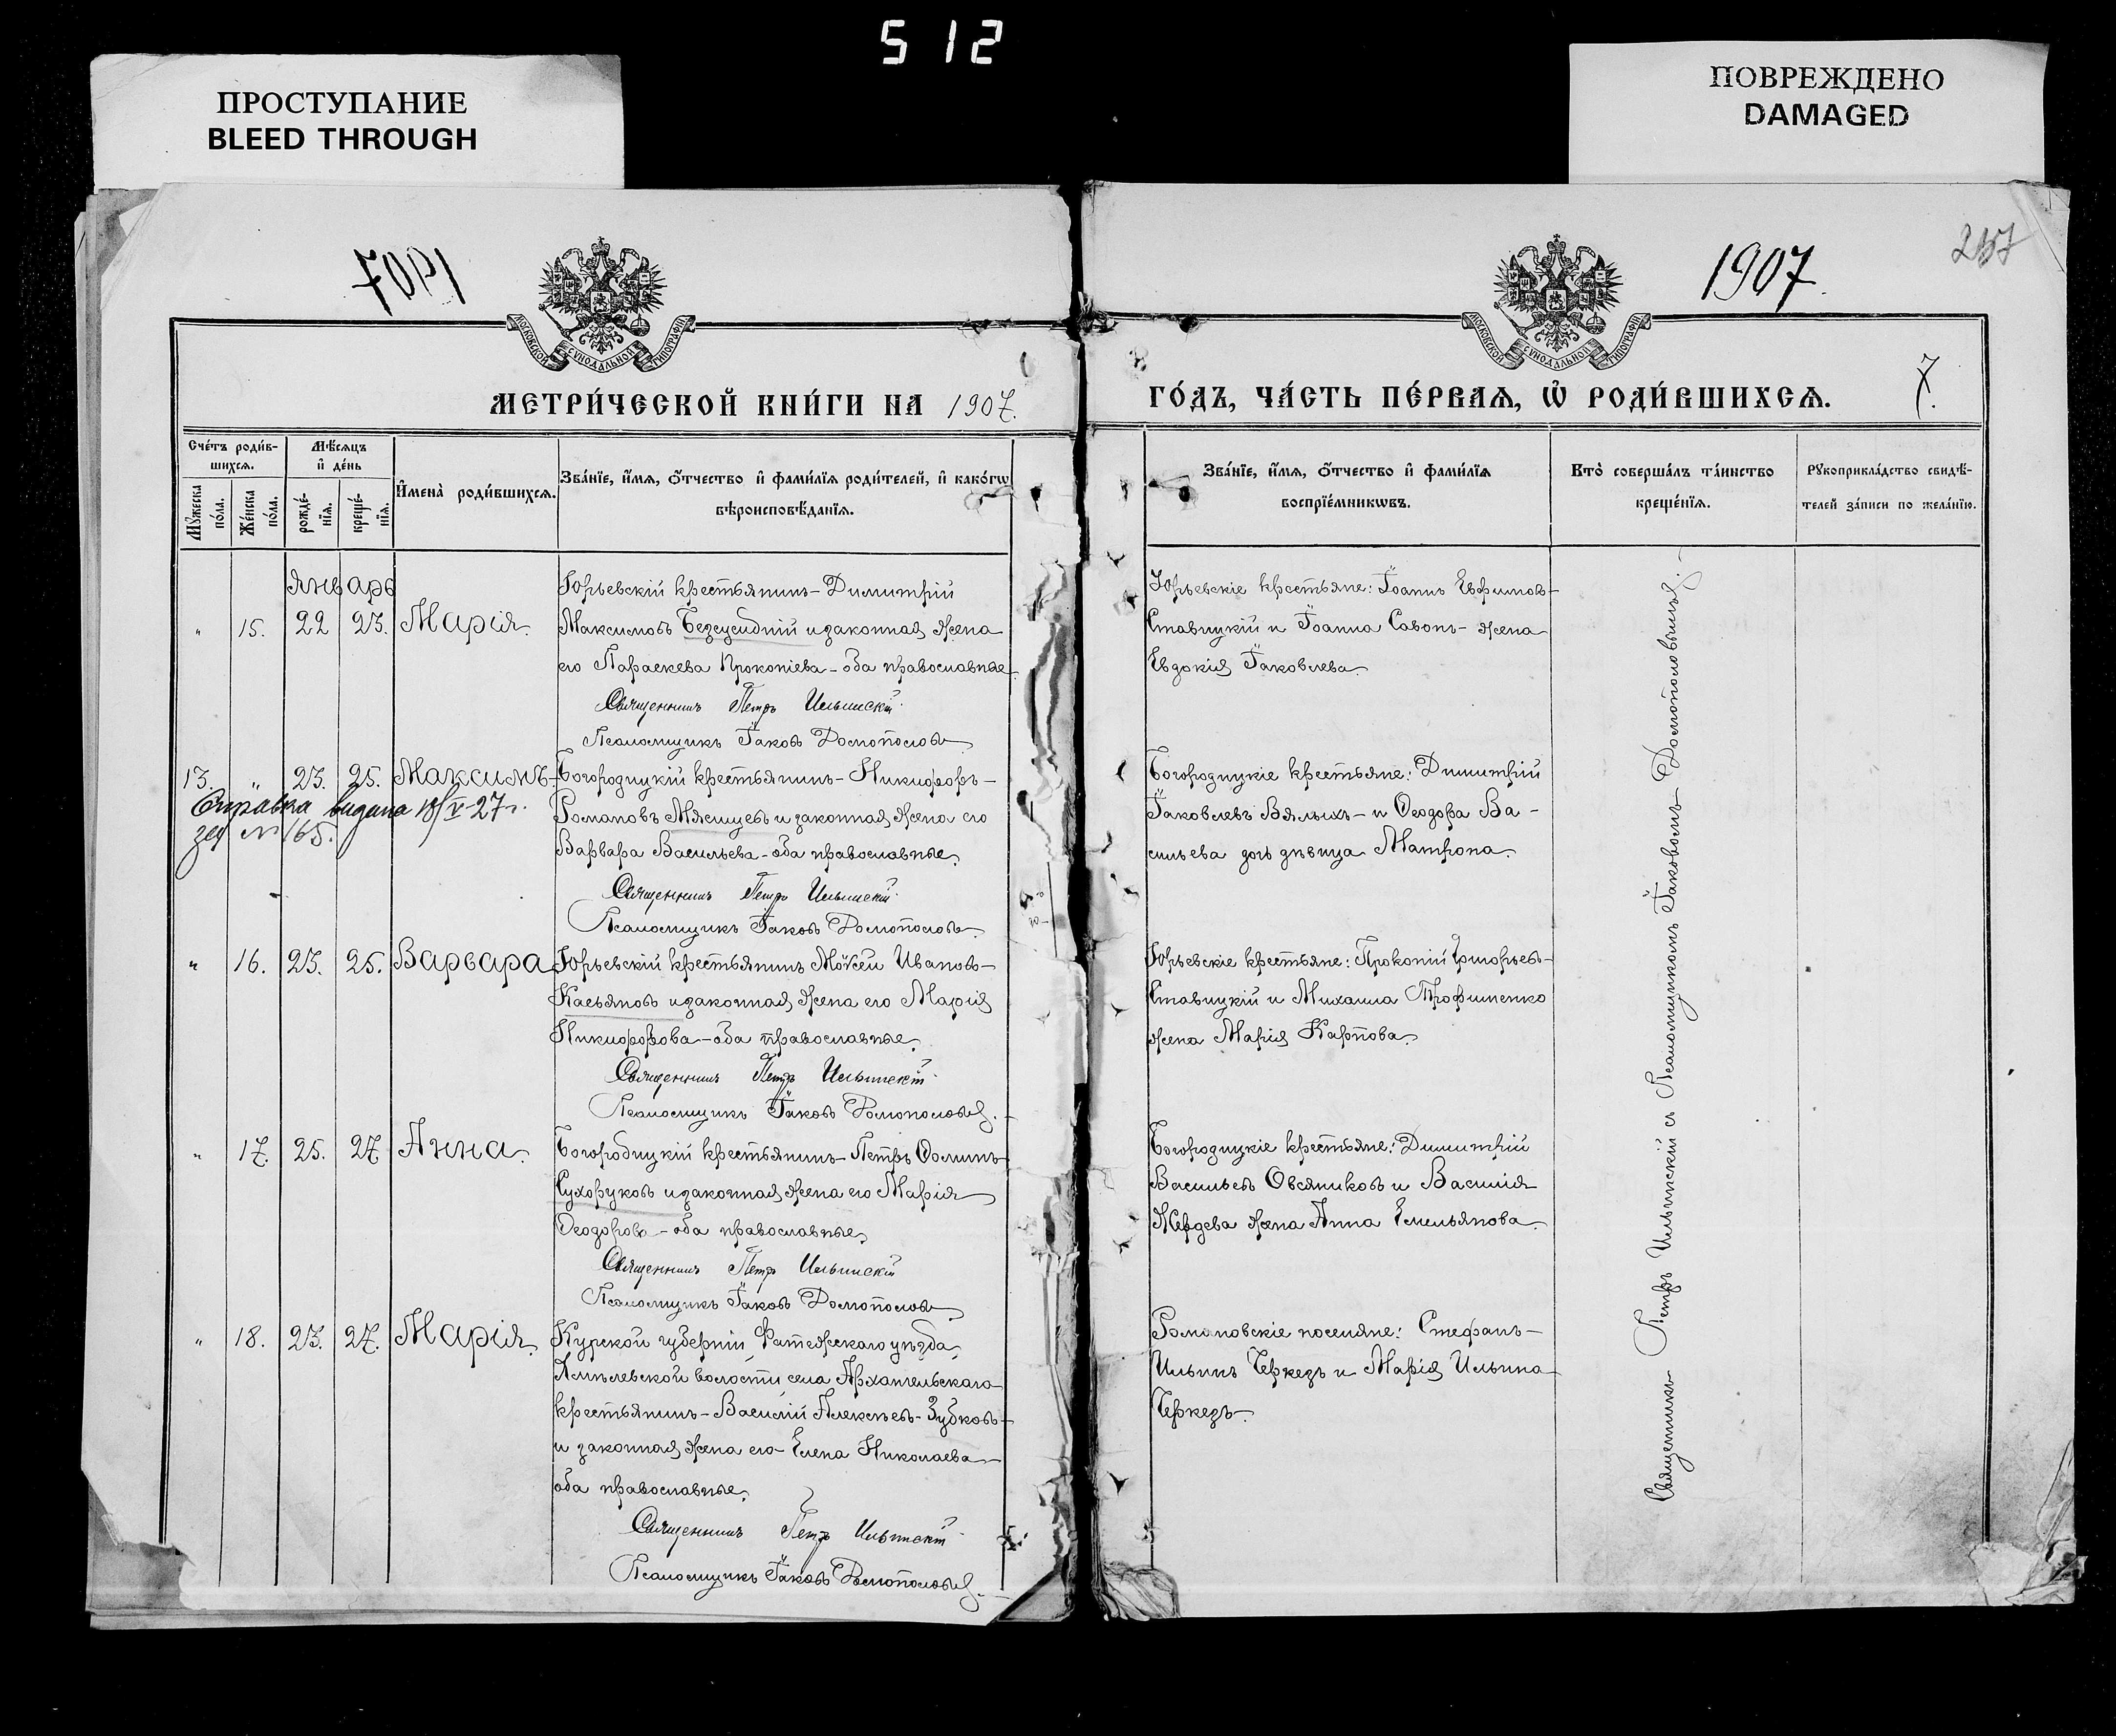 512
ПРОСТУПАНИЕ
BLEED THROUGH
ПОВРЕЖДЕНО
DAMAGED
1907
1907.
257
МОСКОВСКОЙ СѴНОДАЛЬНОЙ ТИПОГРАФІИ
МОСКОВСКОЙ СѴНОДАЛЬНОЙ ТИПОГРАФІИ
МЕТРИ́ЧЕСКОЙ КНИ́ГИ НА 1907.
ГО́ДЪ, ЧА́СТЬ ПЕ́РВАѦ, Ѡ҆ РОДИ́ВШИХСѦ.
7.
Сче́тъ роди́в-
шихсѧ.
Мѣ́сѧцъ
и҆ де́нь
Мꙋ́жеска
по́ла.
Же́нска
по́ла.
рожде́-
нїѧ.
креще́-
нїѧ.
И҆мена̀ роди́вшихсѧ.
Зва́нїе, и҆́мѧ, ѻ҆́тчество и҆ фами́лїѧ роди́телей, и҆ како́гѡ
вѣроисповѣ́данїѧ.
Зва́нїе, и҆́мѧ, ѻ҆́тчество и҆ фами́лїѧ
воспрїе́мникѡвъ.
Кто̀ соверша́лъ та́инство
креще́нїѧ.
Рꙋкоприкла́дство свидѣ́-
телей за́писи по жела́нїю.
Январь
" 15. 22 23. Марія.
Юрьевскій крестьянинъ - Димитрій
Максимовъ и законная жена
его Параскева Прокопіева - оба православные.
Священникъ Петръ Ильинскій
Псаломщикъ Іаковъ
Юрьевскіе крестьяне: Іоаннъ Евфимовъ-
Ставицкій и Іоанна Савонъ - жена
Евдокія Іаковлева.
13. " 23. 25. Максимъ
Справка видана 18/V-27 г.
за № 165.
Богородицкій крестьянинъ - Никифоръ -
Романовъ Мясищевъ и законная жена его
Варвара Васильева - оба православные.
Священникъ Петръ Ильинскій
Псаломщикъ Іаковъ
Богородицкіе крестьяне: Димитрій
Іаковлевъ Вялыхъ - и Ѳеодора Ва-
сильева дочь дѣвица Матрона.
" 16. 23. 25. Варвара
Юрьевскій крестьянинъ Моѵсей Ивановъ-
Касьяновъ и законная жена его Марія
Никифорова - оба православные.
Священникъ Петръ Ильинскій
Псаломщикъ Іаковъ
Юрьевскіе крестьяне: Прокопій Григорьевъ-
Ставицкій и Михаила Трофименко
жена Марія Карпова.
" 17. 25. 27 Анна.
Богородицкій крестьянинъ - Петръ Ѳоминъ
Сухоруковъ и законная жена его Марія
Ѳеодорова - оба православные.
Священникъ Петръ Ильинскій
Псаломщикъ Іаковъ
Богородицкіе крестьяне: Димитрій
Васильевъ Овсяниковъ и Василія
Жердева жена Анна Емельянова.
" 18. 23. 27. Марія.
Курской губерніи, Фатежскаго уѣзда,
волости села Архангельскаго
крестьянинъ - Василій Алексѣевъ - Зубковъ -
и законная жена его - Елена Николаева -
оба православные.
Священникъ Петръ Ильинскій
Псаломщикъ Іаковъ
Романовскіе поселяне: Стефанъ -
Ильинъ Черкезъ и Марія Ильина
Черкезъ.
Священникъ Петръ Ильинскій съ Псаломщикомъ Іаковомъ